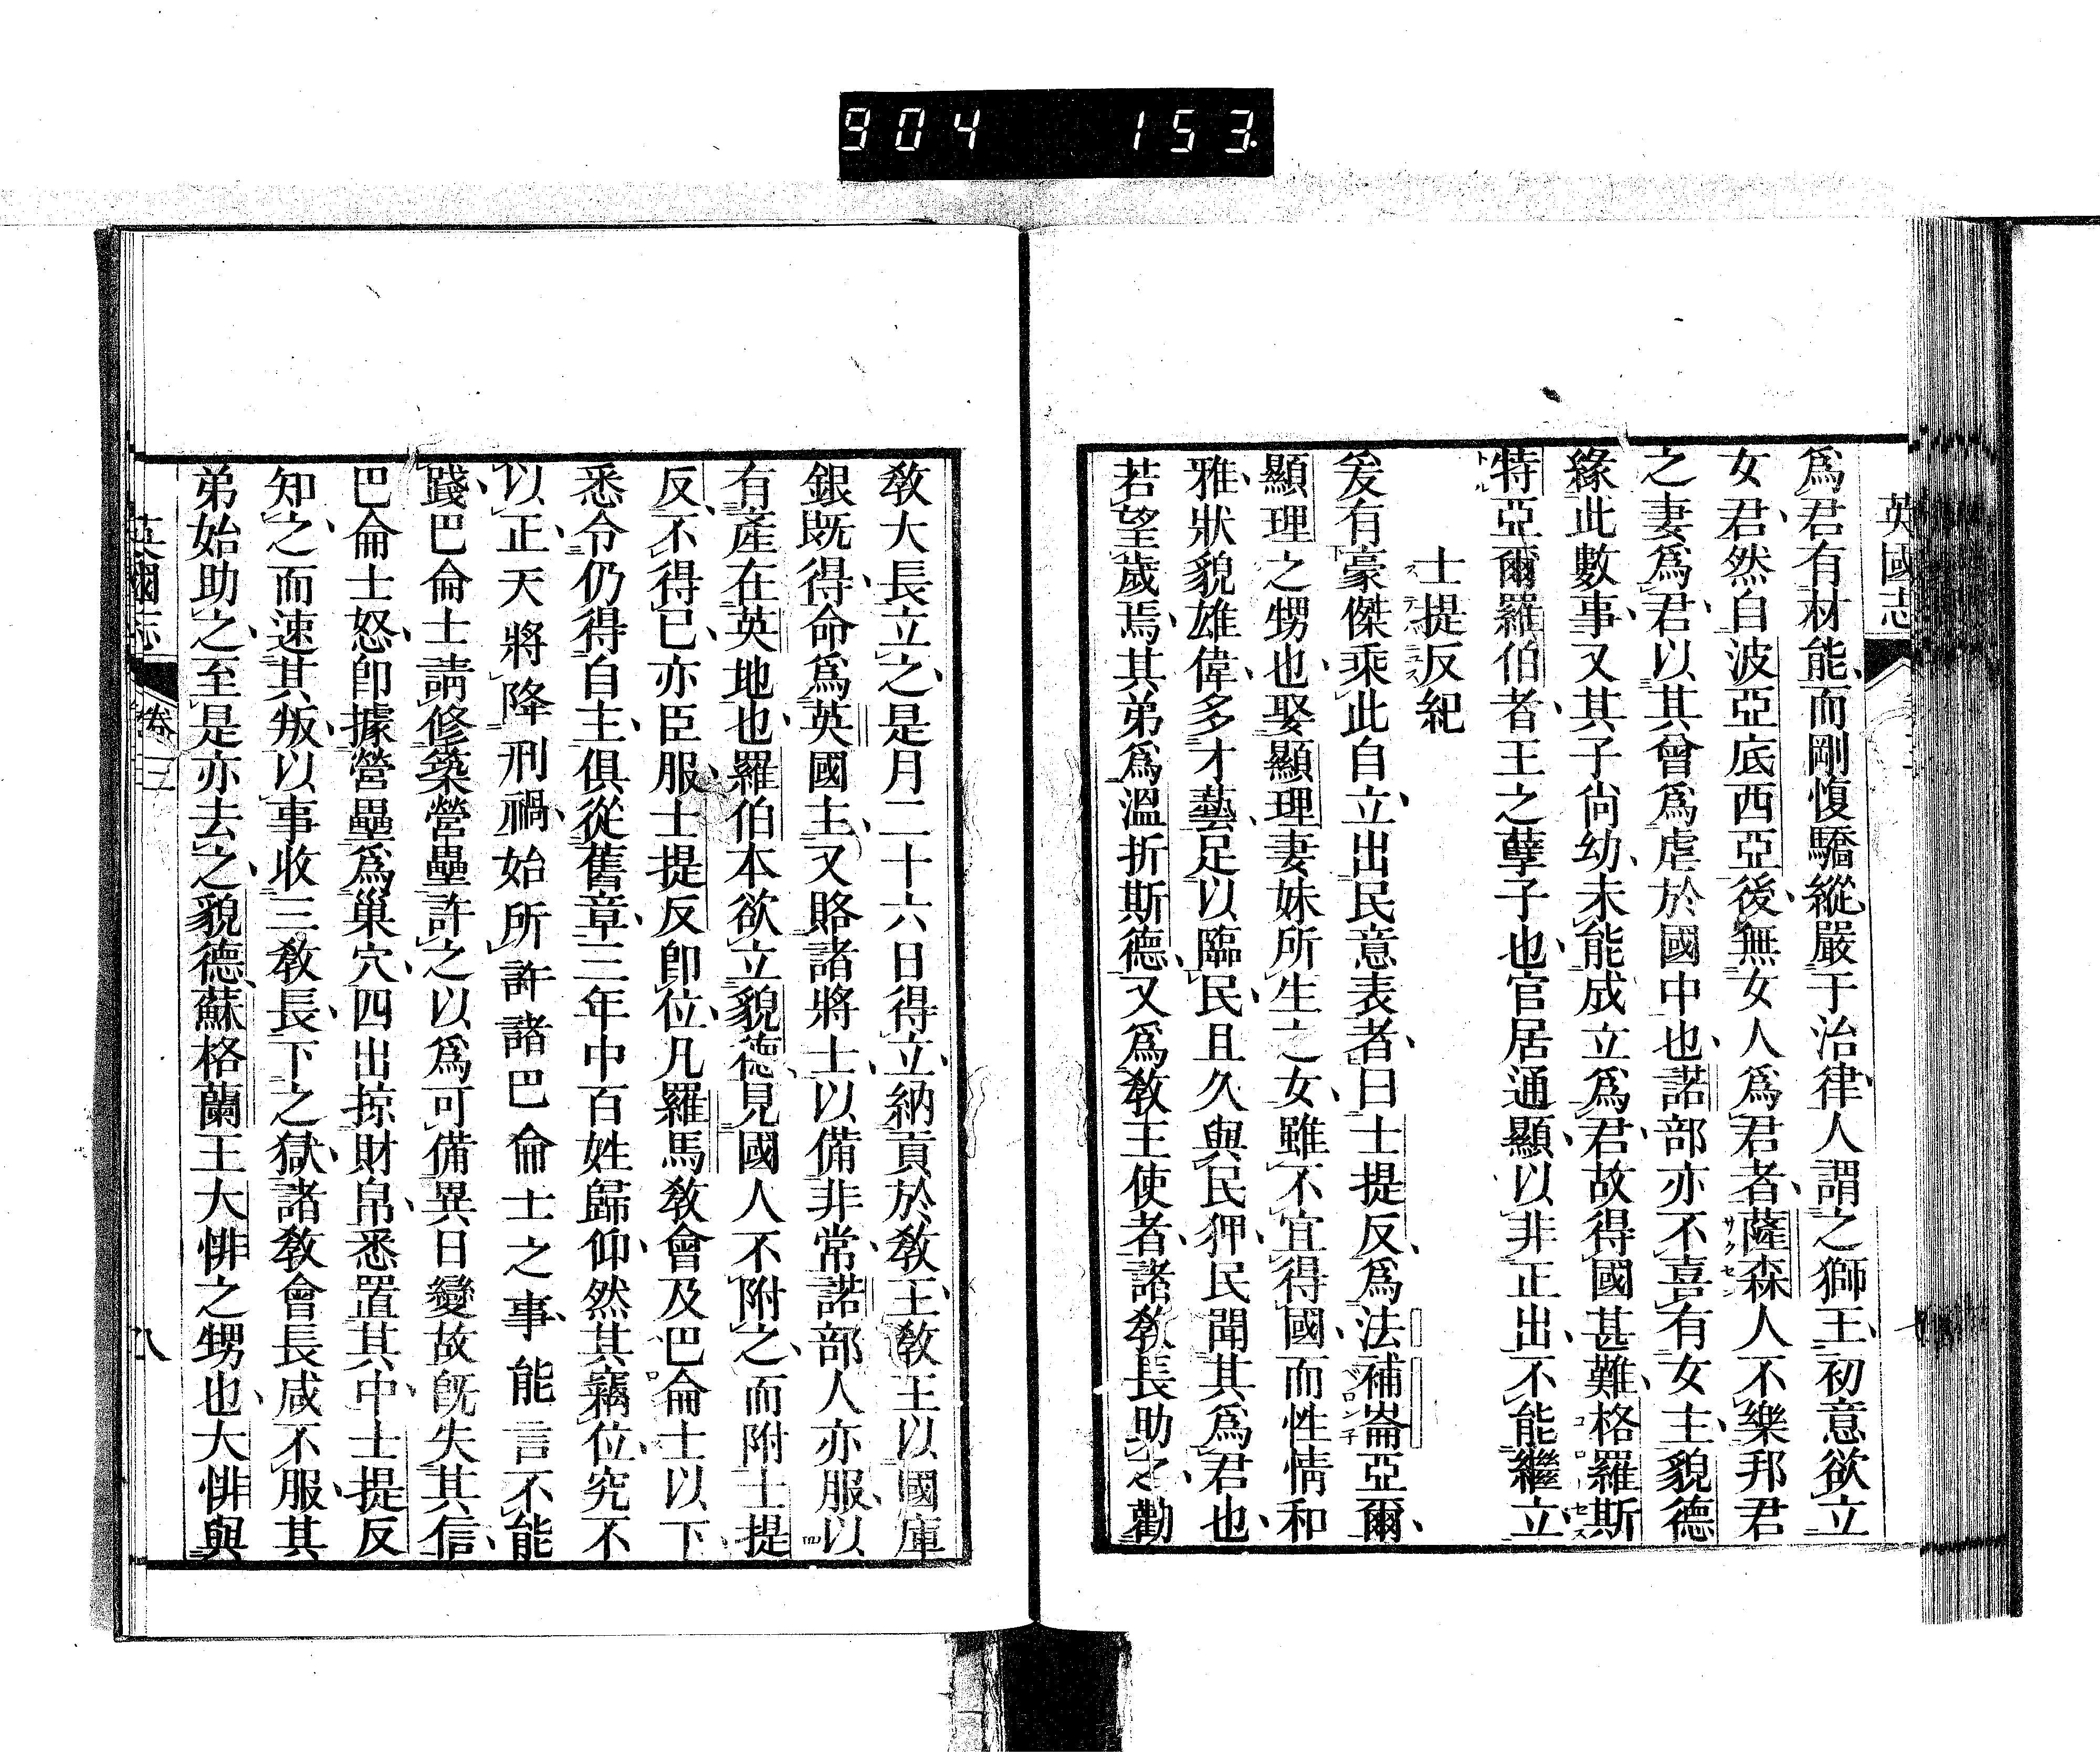 904 153.
英國志
爲君有材能而剛愎驕縱嚴于治律人謂之獅王初意欲立
女君然自波亞底西亞後無女人爲君者薩森人不樂邦君
サクセン
之妻爲君以其曾爲虐於國中也諾部亦不喜有女主貌德
緣此數事又其子尚幼未能成立爲君故得國甚難格羅斯
コローセス
特亞爾羅伯者王之孽子也官居通顯以非正出不能繼立
トル
士提反紀
爰有豪傑乘此自立出民意表者曰士提反爲法補崙亞爾
顯理之甥也娶顯理妻妹所生之女雖不宜得國而性情和
雅狀貌雄偉多才藝足以臨民且久與民狎民聞其爲君也
若望歲焉其弟爲溫折斯德又爲教王使者諸教長助之勸
教大長立之是月二十六日得立納貢於教王教王以國庫
銀既得命爲英國主又賂諸將士以備非常諾部人亦服以
有產在英地也羅伯本欲立貌德見國人不附之而附士提
反不得已亦臣服士提反卽位凡羅馬教會及巴倫士以下
悉令仍得自主俱從舊章三年中百姓歸仰然其竊位究不
以正天將降刑禍始所許諸巴倫士之事能言不能
踐巴倫士請修築營壘許之以爲可備異日變故旣失其信
巴倫士怒卽據營壘爲巢穴四出掠財帛悉置其中士提反
知之而速其叛以事收三教長下之獄諸教會長咸不服其
弟始助之至是亦去之貌德蘇格蘭王大悱之甥也大悱與
英國志
卷三
八